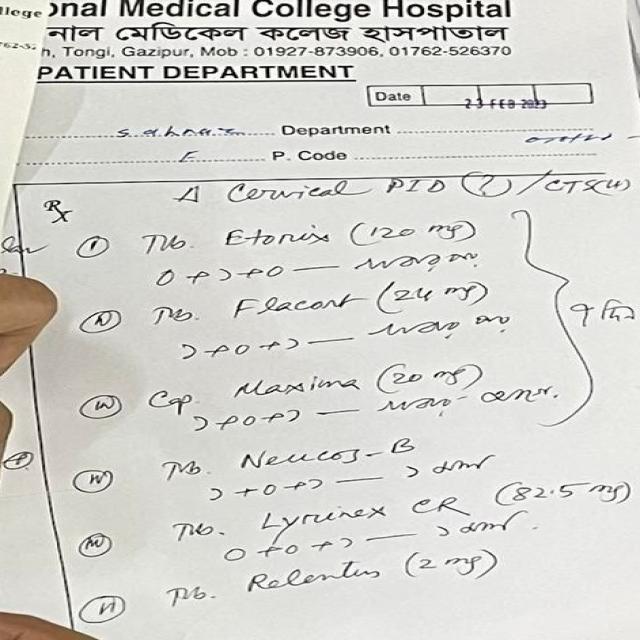 llege
onal Medical College Hospital
নাল মেডিকেল কলেজ হাসপাতাল
h, Tongi, Gazipur, Mob : 01927-873906, 01762-526370
PATIENT DEPARTMENT
Date 23 FEB 2023
Department
F P. Code
Δ Cervical PID (?) / CTS
Rx
১ Tab. Etorix (120 mg)
0+১+0 —
২ Tab. Flacort (24 mg)
১+0+১ —
৩ Cap. Maxima (20 mg)
১+0+১ —
৭ দিন
৪ Tab. Neucos-B
১+0+১ — ১ মাস
৫ Tab. Lyrinex CR (82.5 mg)
0+0+১ — ১ মাস
৬ Tab. Relentus (2 mg)